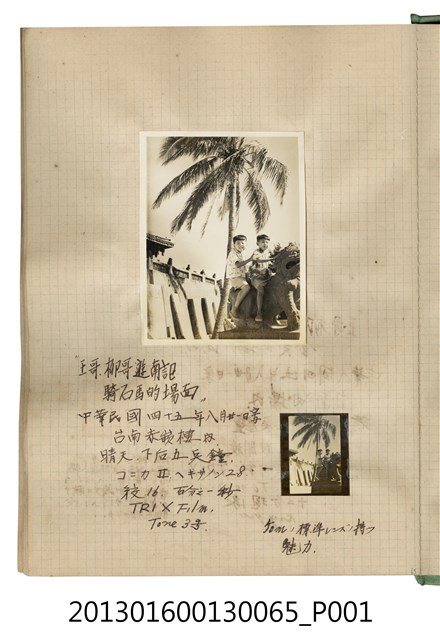 "王哥柳哥遊記
騎石馬的場面"
中華民國四十五年八月廿日寫
台南赤崁樓
晴天 下后五点鐘
コニカ II ヘキサノン 2.8
絞16. 百分之一秒
TRI X Film.
Tone 3号.
標準レンズノ持つ
魅力.
201301600130065_P001